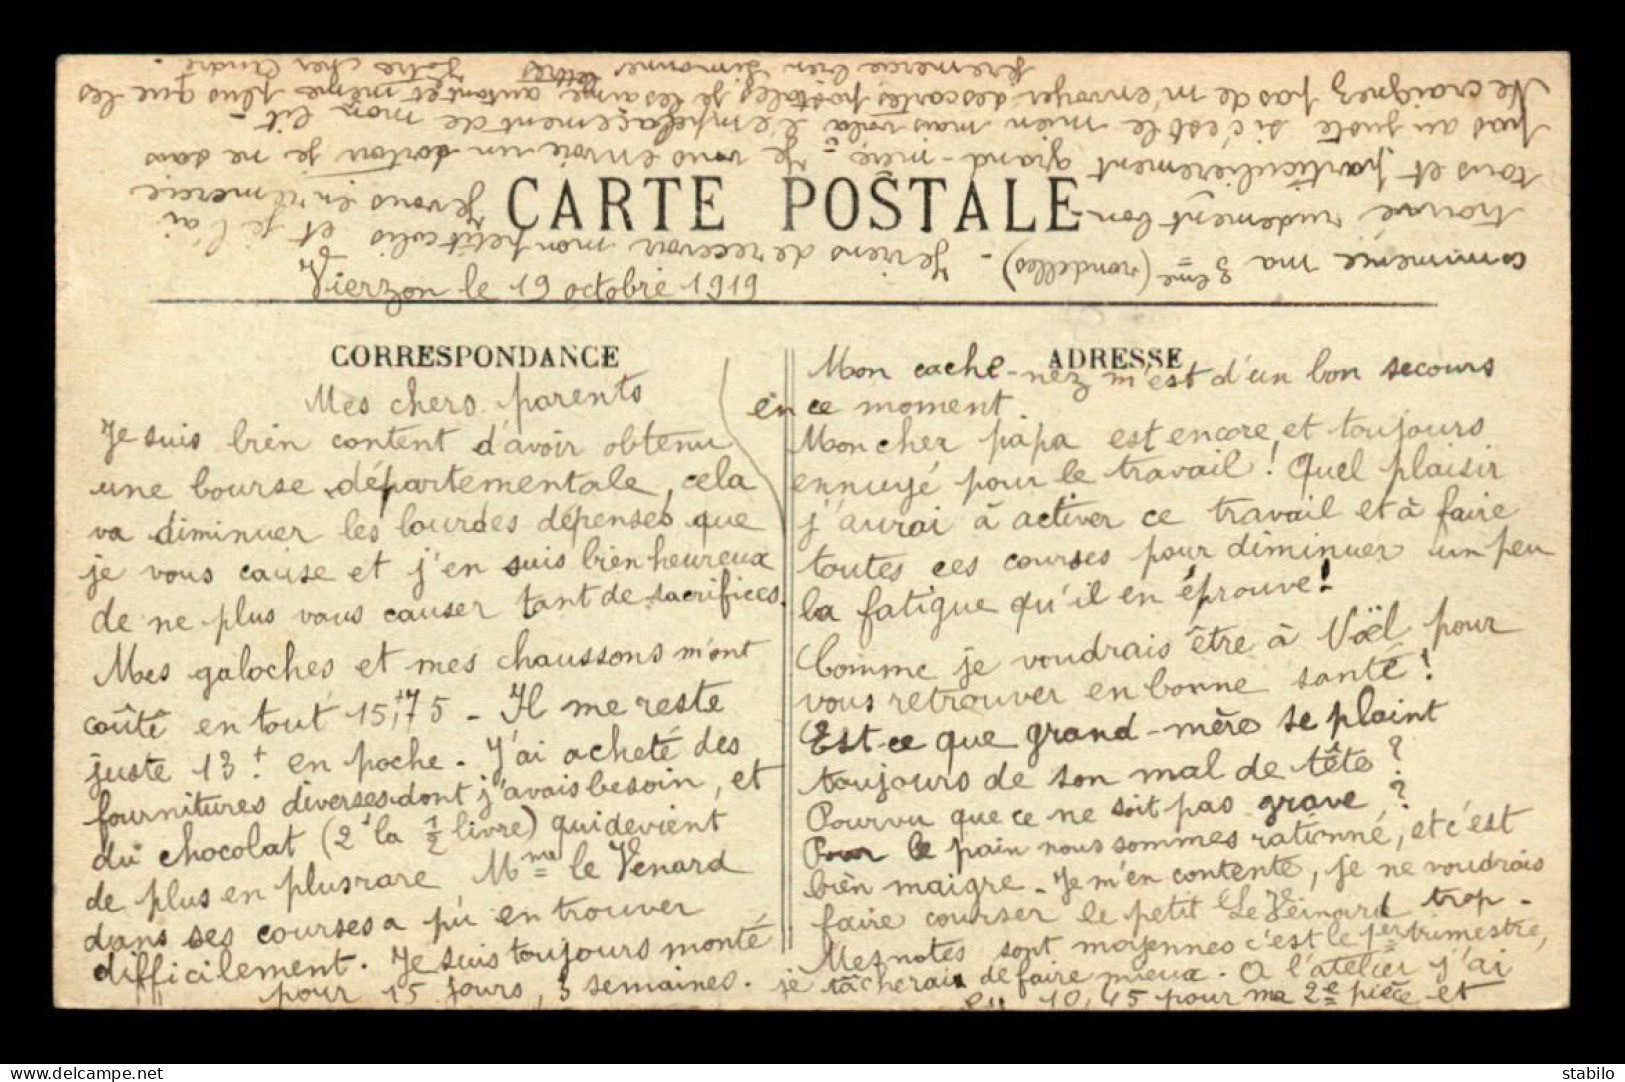 CARTE POSTALE
Vierzon le 19 octobre 1919
CORRESPONDANCE
Mes chers parents
Je suis bien content d'avoir obtenu
une bourse départementale, cela
va diminuer les lourdes dépenses que
je vous cause et j'en suis bien heureux
de ne plus vous causer tant de sacrifices.
Mes galoches et mes chaussons m'ont
coûté en tout 15,75 - Il me reste
juste 13f. en poche. J'ai acheté des
fournitures diverses dont j'avais besoin, et
du chocolat (2f la ½ livre) qui devient
de plus en plus rare Mme le Venard
dans ses courses a pu en trouver
difficilement. Je suis toujours monté
pour 15 jours, 3 semaines.
ADRESSE
Mon cache-nez m'est d'un bon secours
en ce moment.
Mon cher papa est encore et toujours
ennuyé pour le travail! Quel plaisir
j'aurai à activer ce travail et à faire
toutes ces courses pour diminuer un peu
la fatigue qu'il en éprouve!
Comme je voudrais être à Noël pour
vous retrouver en bonne santé!
Est-ce que grand-mère se plaint
toujours de son mal de tête?
Pourvu que ce ne soit pas grave?
Pour le pain nous sommes rationné, et c'est
bien maigre - Je m'en contente, je ne voudrais
faire courser le petit Le Veinard trop -
Mes notes sont moyennes c'est le 1er trimestre,
je tâcherais de faire mieux. A l'atelier j'ai
eu 10,45 pour ma 2e pièce et
commencé ma 3ème (rondelles) - Je viens de recevoir mon petit colis et je l'ai
trouvé rudement bon - Je vous en remercie
tous et particulièrement grand-mère - Je vous envoie un dortoir je ne sais
pas au juste si c'est le mien mais voilà l'emplacement de mon lit -
Ne craignez pas de m'envoyer des cartes postales, je les aime autant et même plus que les
lettres Votre cher André.
Remercie bien Simonne
delcampe.net
stabilo